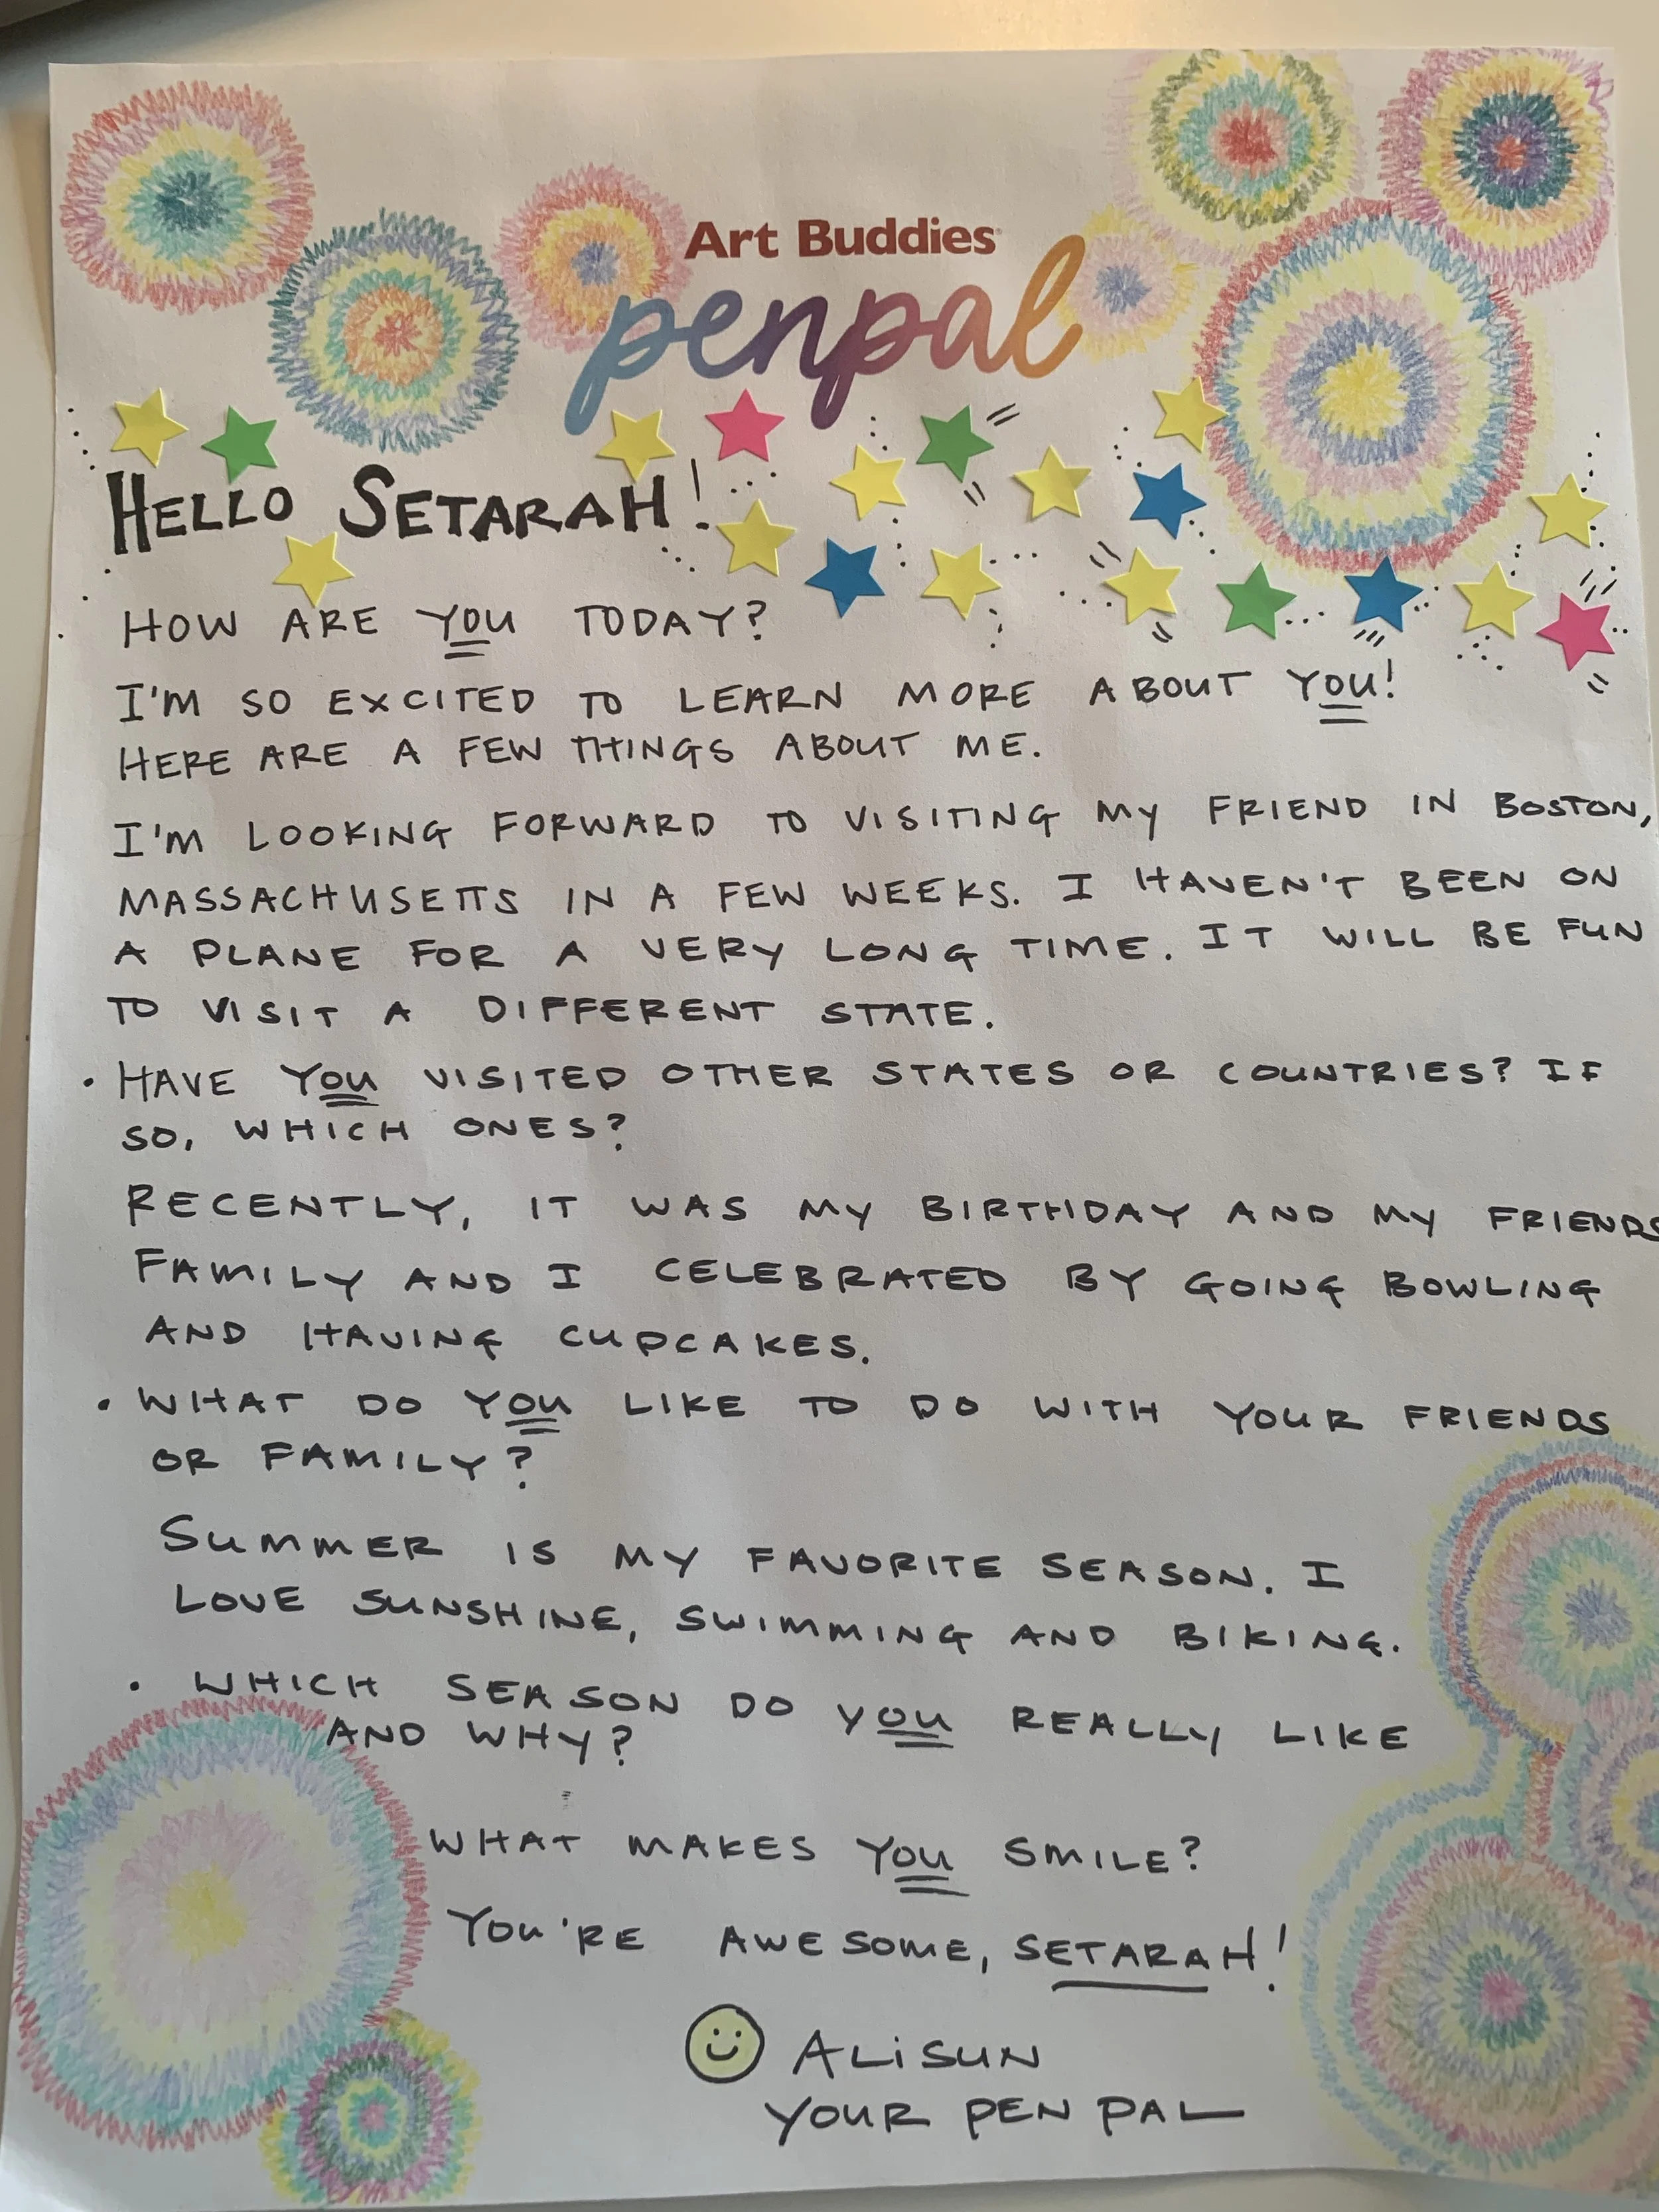 Art Buddies
penpal
HELLO SETARAH!
HOW ARE YOU TODAY?
I'M SO EXCITED TO LEARN MORE ABOUT YOU!
HERE ARE A FEW THINGS ABOUT ME.
I'M LOOKING FORWARD TO VISITING MY FRIEND IN BOSTON,
MASSACHUSETTS IN A FEW WEEKS. I HAVEN'T BEEN ON
A PLANE FOR A VERY LONG TIME. IT WILL BE FUN
TO VISIT A DIFFERENT STATE.
• HAVE YOU VISITED OTHER STATES OR COUNTRIES? IF
SO, WHICH ONES?
RECENTLY, IT WAS MY BIRTHDAY AND MY FRIENDS
FAMILY AND I CELEBRATED BY GOING BOWLING
AND HAVING CUPCAKES.
• WHAT DO YOU LIKE TO DO WITH YOUR FRIENDS
OR FAMILY?
SUMMER IS MY FAVORITE SEASON. I
LOVE SUNSHINE, SWIMMING AND BIKING.
• WHICH SEASON DO YOU REALLY LIKE
AND WHY?
WHAT MAKES YOU SMILE?
YOU'RE AWESOME, SETARAH!
ALiSUN
YOUR PEN PAL